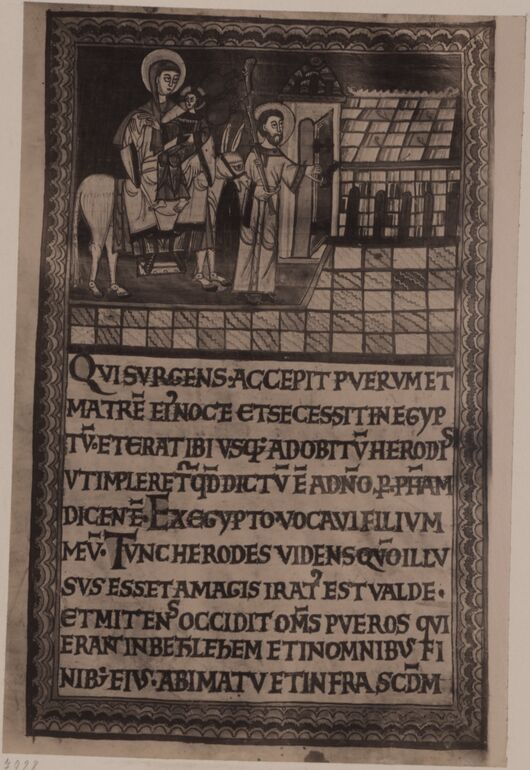 QVI SVRGENS·ACCEPIT PVERVM ET
MATRĒ EI᾽ NOCE ET SECESSIT IN EGYP
TV̄·ET ERAT IBI VSQ; AD OBITV̄ HERODIS
VT IMPLERET᾽ Q̄D DICTV̄ Ē A DN̄O·P·PH̄AM
DICENĒ·EX EGYPTO·VOCAVI FILIVM
MEV̄·TVNC HERODES VIDENS QVO ILLV
SVS ESSET A MAGIS IRAT᾽ EST VALDE·
ET MITENS OCCIDIT OM̄S PVEROS QVI
ERANT IN BETHLEHEM ET IN OMNIBVS FI
NIB; EIVS·A BIMATV ET INFRA SCD̄M
7028